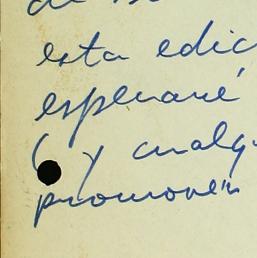 esta edic
esperaré
( y cualq
promover